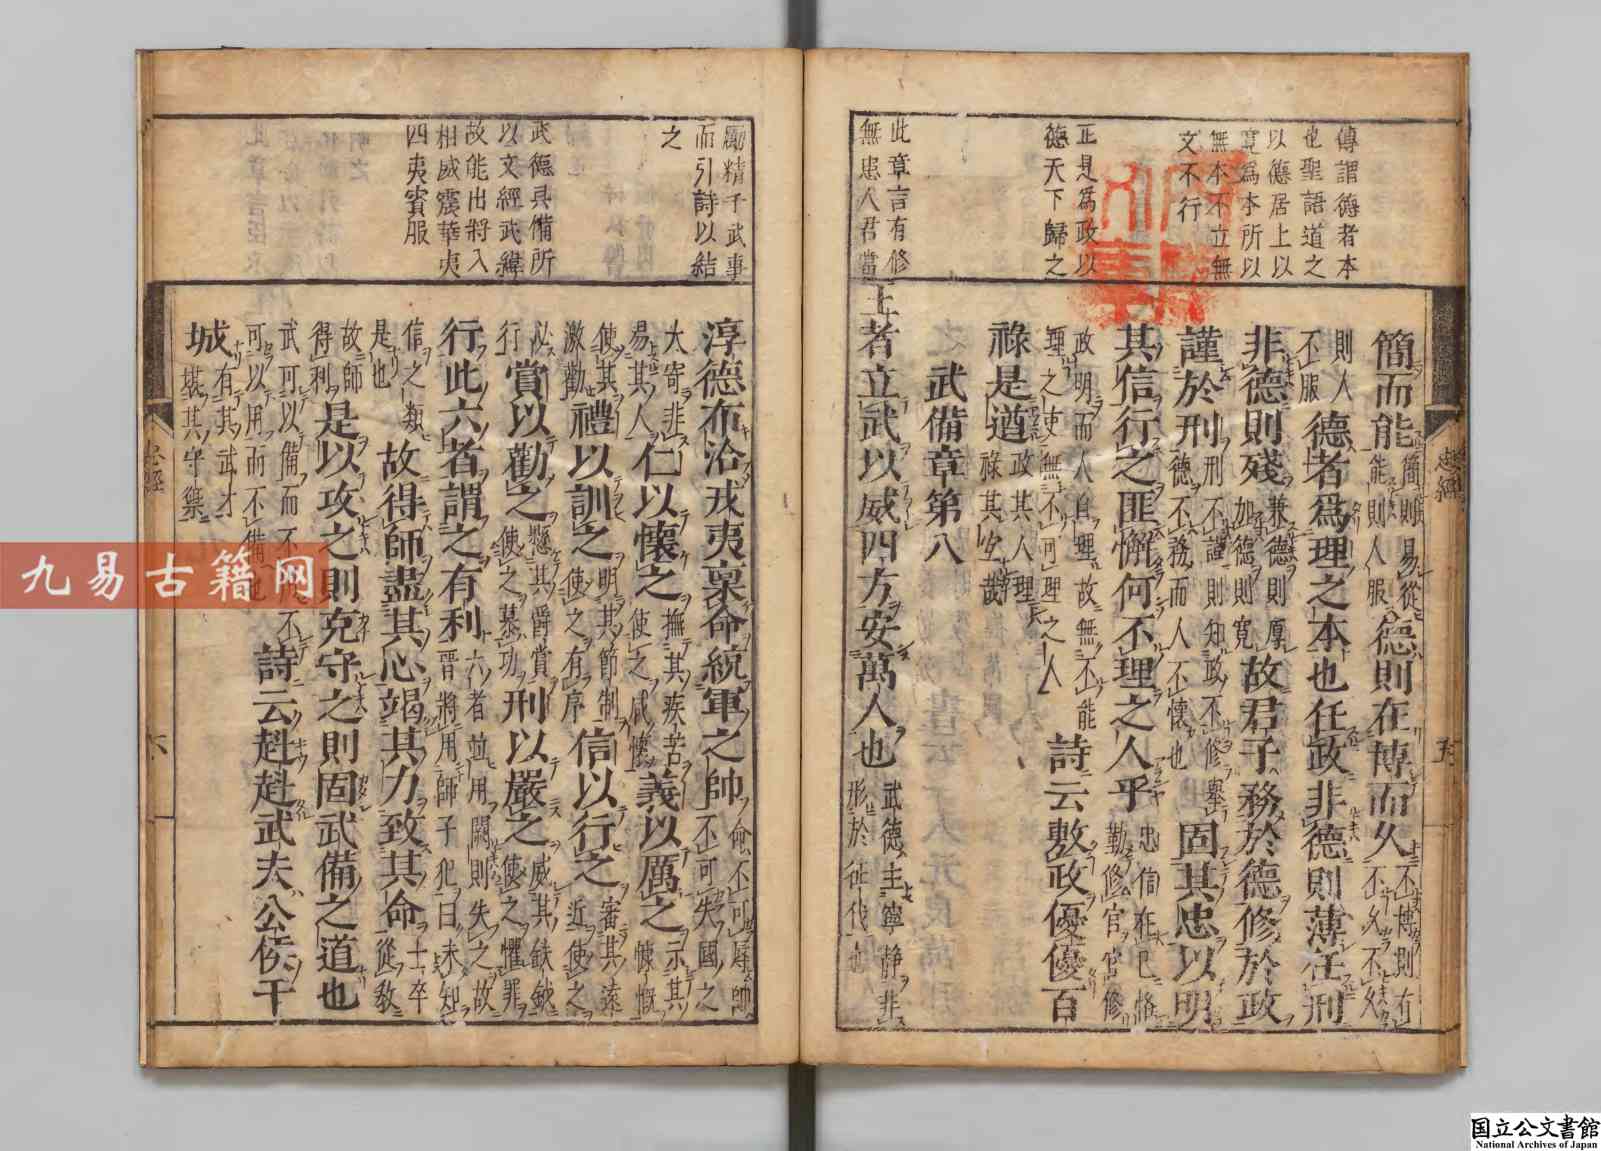 傳謂德者本
也聖語道之
以德居上以
寛爲本所以
無本不立無
文不行
正是爲政以
德天下歸之
此章言有修
無患人君當
簡而能簡則易從能則人服德則在博而久不博則有不久不久
則人不服德者爲理之本也任政非德則薄任刑
非德則殘兼德則厚加德則寛故君子務於德修於政
謹於刑刑不謹則知政不修擧德不務而人不懷也固其忠以明
其信行之匪懈何不理之人乎忠信在已恪勤修官官修
政明而人自理故無不能理之吏無不可理之人詩云敷政優優百
祿是遒政其人理祿其空哉
武備章第八
王者立武以威四方安萬人也武德主寧静非形於征伐
忠經
五
勵精于武事
而引詩以結
之
武德具備所
以文經武緯
故能出將入
相威震華夷
四夷賓服
淳德布洽戎夷稟命統軍之帥命不可辱帥不可失國之
大寄非易其人仁以懷之撫其疾苦使之咸懷義以厲之示其慷慨
使其激勸禮以訓之明其節制使之有序信以行之審其遠近使之
必行賞以勸之懸其爵賞使之慕功刑以嚴之威其鈇鉞使之懼罪
行此六者謂之有利六者並用闕則失之故晋將用師子犯曰未知
信之類是也故得師盡其心竭其力致其命士卒從教
故師得利是以攻之則克守之則固武備之道也
武可以備而不可以用而不備也詩云赳赳武夫公侯干
城有其武才堪其守禦
忠經
六
九易古籍网
国立公文書館
National Archives of Japan